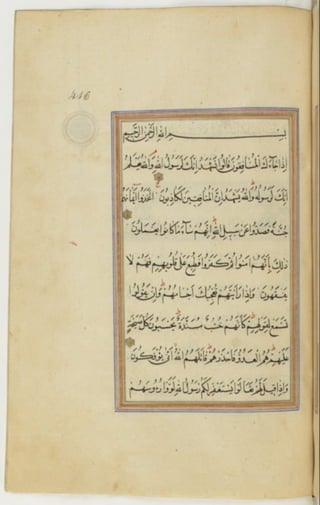 446
بسم الله الرحمن الرحيم
اذا جاءك المنافقون قالوا نشهد انك لرسول الله والله يعلم
انك لرسوله والله يشهد ان المنافقين لكاذبون اتخذوا ايمانهم
جنة فصدوا عن سبيل الله انهم ساء ما كانوا يعملون
ذلك بانهم امنوا ثم كفروا فطبع على قلوبهم فهم لا
يفقهون واذا رايتهم تعجبك اجسامهم وان يقولوا
تسمع لقولهم كانهم خشب مسندة يحسبون كل صيحة
عليهم هم العدو فاحذرهم قاتلهم الله انى يؤفكون
واذا قيل لهم تعالوا يستغفر لكم رسول الله لووا رءوسهم